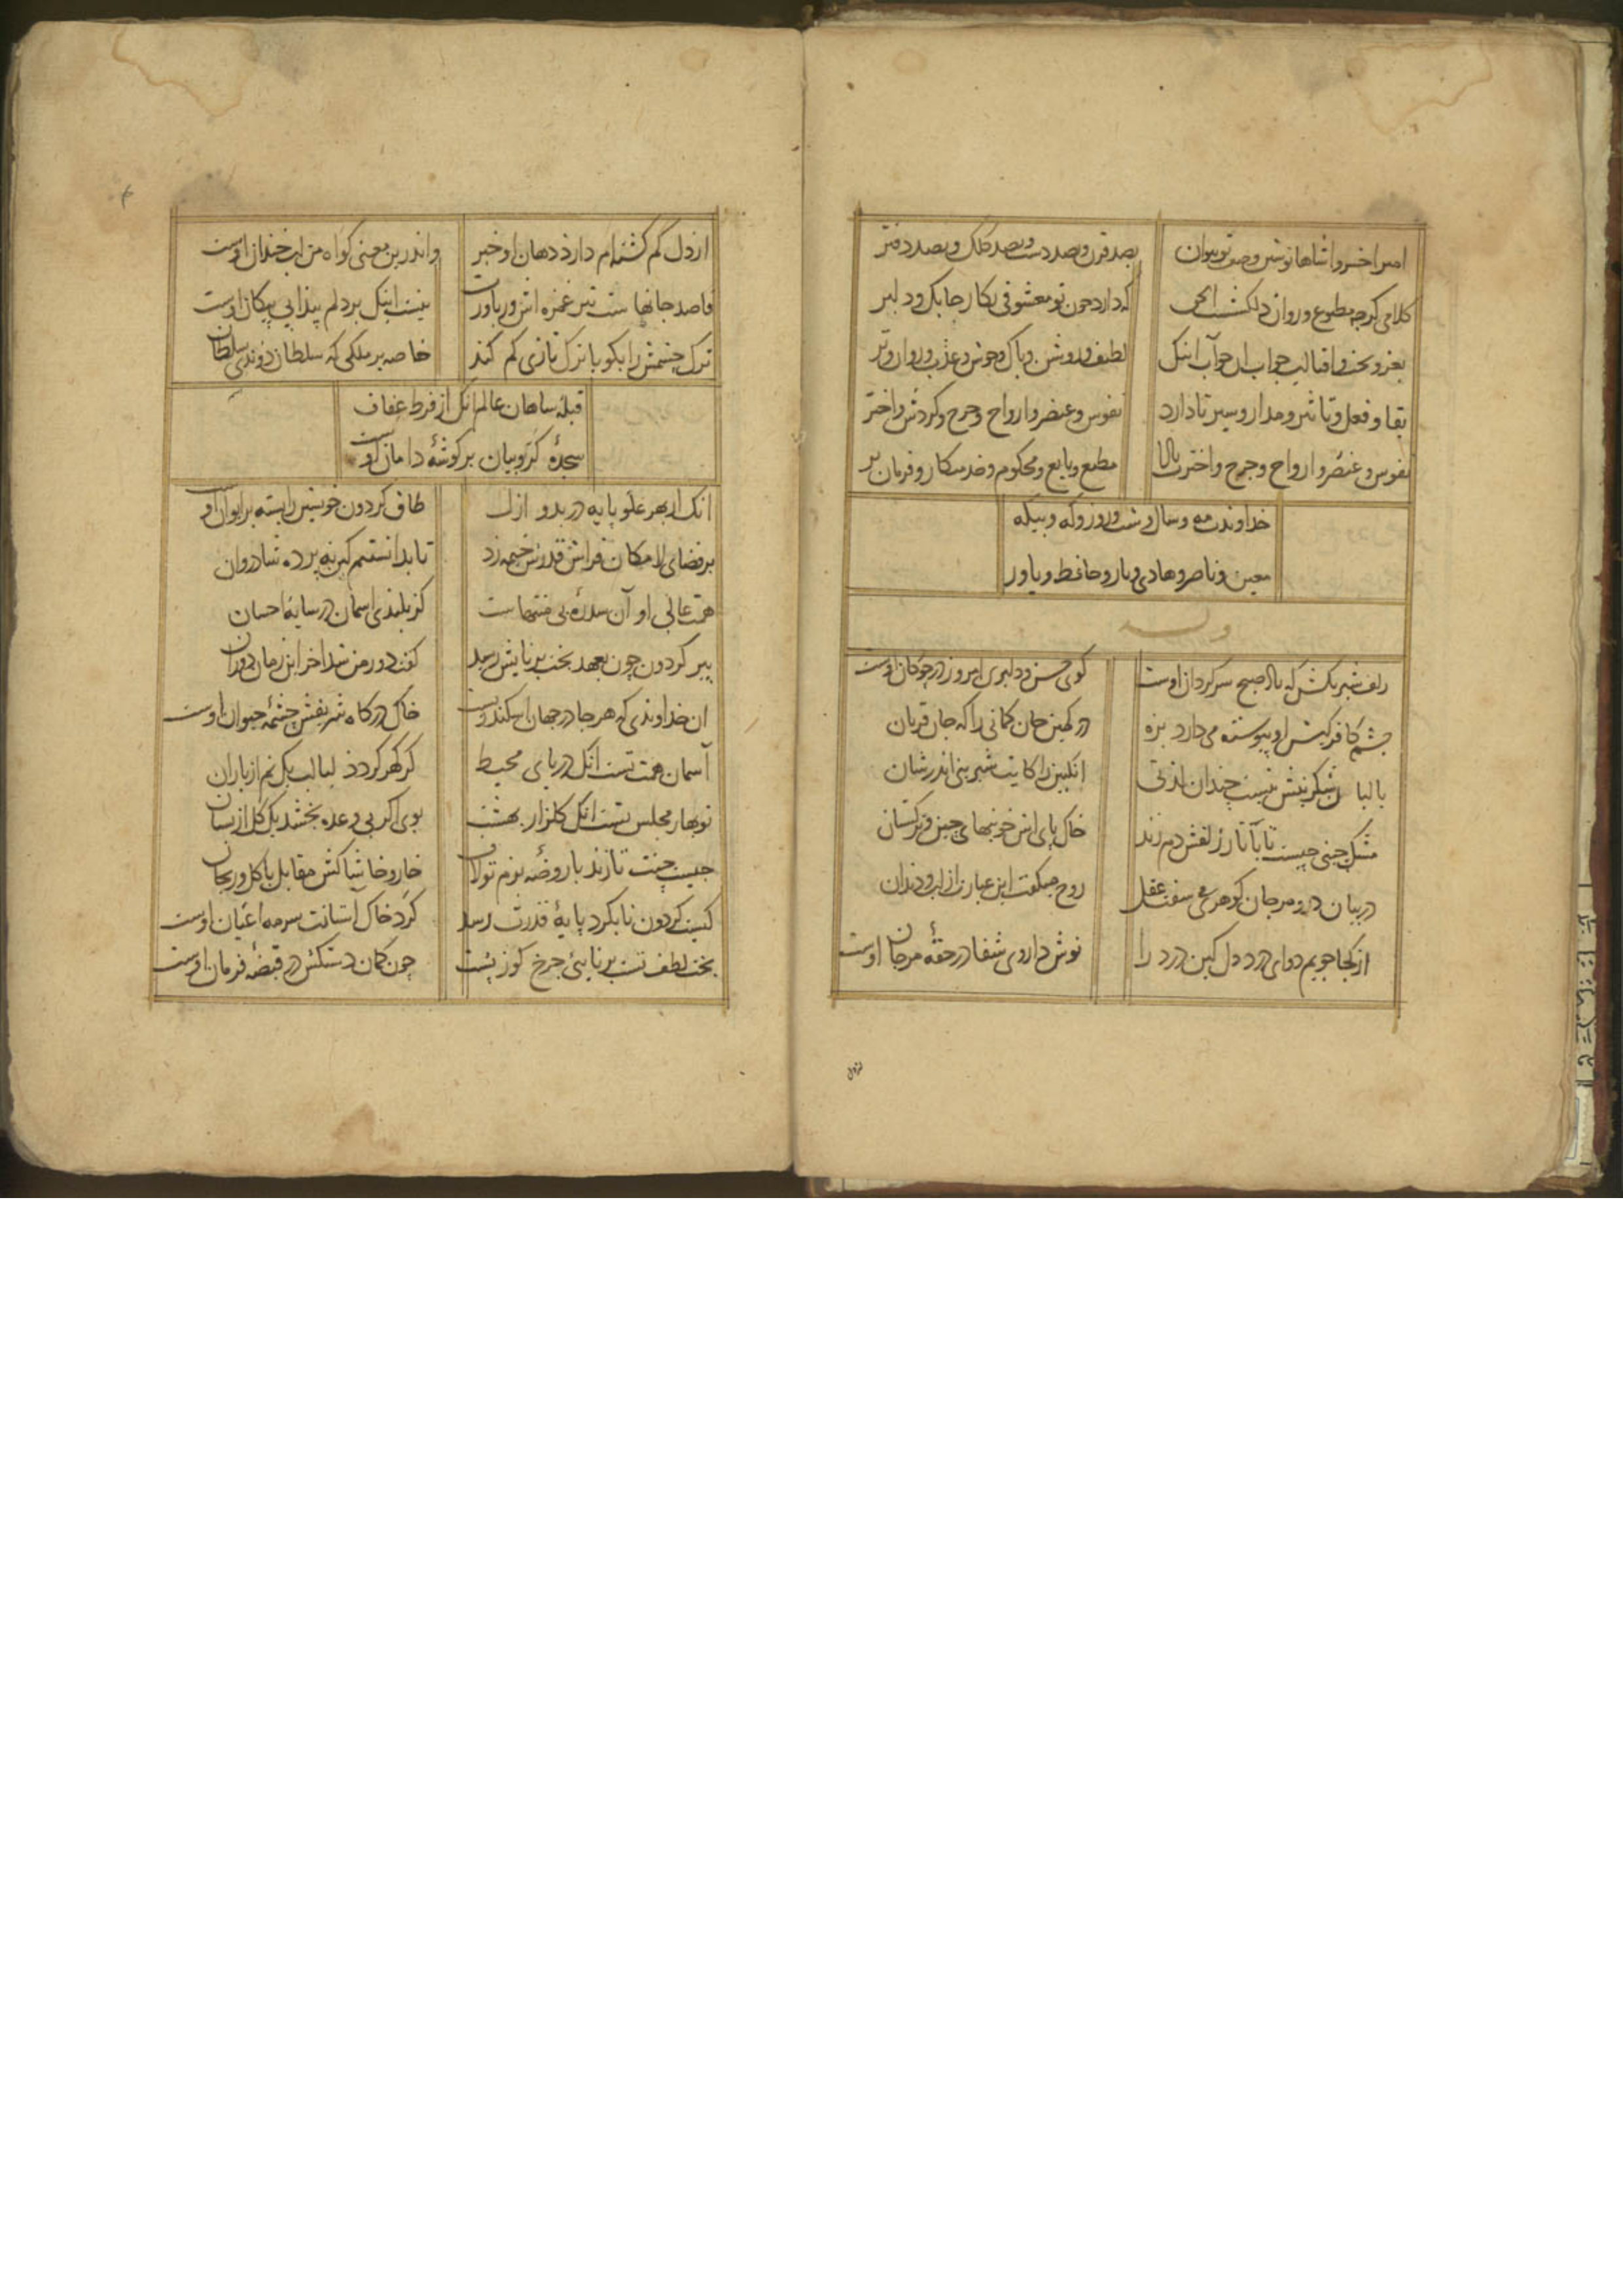 امیرا خسروا شاها نوشتن وصف تو نتوان بصد قرن و بصد دست و بصد کلک و بصد دفتر
کلامی کرچه مطبوع و روان دلکشست که دارد چون تو معشوقی نکار چابک و دلبر
بعز و بخت و اقبالت جواب ان جواب انیک لطیف و روشن و پاک و خوش و عذب و روان و تر
بقا و فعل و تاثیر و مدار و سیر تا دارد نفوس و عنصر و ارواح و چرخ و کردش و اختر
نفوس و عنصر و ارواح و چرخ و اخترت بادا مطیع و تابع و محکوم و خدمتکار و فرمان بر
خداوندت مه و سال و شب و روز و که و بیکه
معین و ناصر و هادی و یار و حافظ و یاور
وله
زلف شبرنکش که باد صبح سرکردان اوست کوی حسن و دلبری امروز در چوکان اوست
چشم کافر کیش او پیوسته می دارد بزه در کمین جان کمانی را که جان قربان
با لبان شکرینش نیست چندان لذتی انکبین را کایت شیرینی اندر شان
مشک چینی چیست تا با تار زلفش دم زند خاک پای اش خونبهای چین و ترکستان
در بیان در و مرجان کوهری می سفت عقل روح میکفت این عبارت از لب و دندان
از کجا جویم دوای درد دل کین درد را نوش داروی شفا در حقهٔ مرجان اوست
از دل کم کشته ام دارد دهان او خبر و اندرین معنی کواه من لب خندان اوست
قاصد جانها ست تیر غمزه اش ور باورت نیست اینک بر دلم پیدایی پیکان اوست
ترک چشمش را بکو با ترک تازی کم کند خاصه بر ملکی که سلطان دوندی سلطان
قبله شاهان عالم انک از فرط عفاف
سجدهٔ کروبیان بر کوشهٔ دامان اوست
انک از بهر علو پایه در بدو ازل طاق کردون خویشتن را بسته بر ایوان اوست
بر فضای لامکان فراش قدرش خیمه زد تا بدانستم که این نه پرده شادروان
همت عالی او آن سدره بی منتهاست کز بلندی اسمان در سایهٔ احسان
پیر کردون چون بعهد بخت برنایش رسید کفت دور من شد اخر این زمان دوران
ان خداوندی که هر جا در جهان اسکندریست خاک درکاه شریفش چشمهٔ حیوان اوست
آسمان همت تست انک دریای محیط کر کهر کردد لبالب یک نم از باران
نوبهار مجلس تست انک کلزار بهشت بوی اکر بی وعده بخشد یک کل از بستان
چیست جنت تا زند با روضهٔ بزم تو لاف خار و خاشاکش مقابل با کل و ریحان
کیست کردون تا بکرد پایهٔ قدرت رسد کرد خاک آستانت سرمه اعیان اوست
بخت لطف تست برنایی چرخ کوز پشت چون کمان دستکش در قبضهٔ فرمان اوست